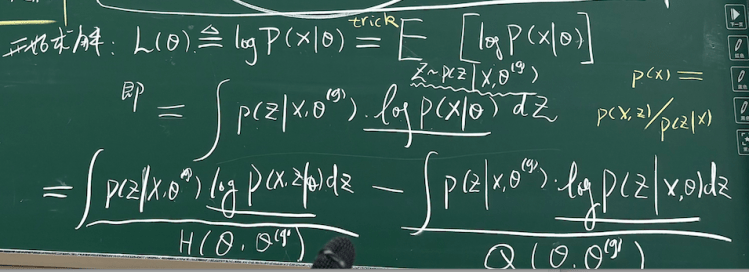 开始求解: L(θ) ≜ log P(x|θ) = E [log P(x|θ)]
trick
z~p(z|x,θ^(g))
即 = ∫ p(z|x,θ^(g)) · log p(x|θ) dz
p(x) =
p(x,z)/p(z|x)
= ∫ p(z|x,θ^(g)) log p(x,z|θ) dz − ∫ p(z|x,θ^(g)) · log p(z|x,θ) dz
H(θ,θ^(g)) Q(θ,θ^(g))